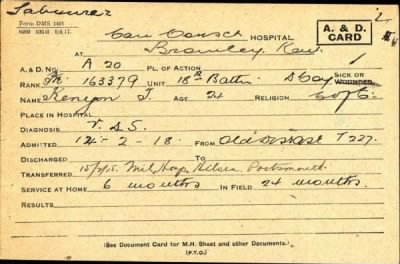 Labourer
Form DMS 1401
A. & D. CARD
Can Consch HOSPITAL
AT Bromley Kent
A. & D. No. A 20 PL. OF ACTION
RANK Pte 163379 UNIT 18th Battn SICK OR WOUNDED
NAME Kenyon J. AGE 24 RELIGION C of E
PLACE IN HOSPITAL
DIAGNOSIS V.D.S.
ADMITTED 12-2-18. FROM Old Disease T 227.
DISCHARGED TO
TRANSFERRED 15/2/18. Mil Hosp Hilsea Portsmouth
SERVICE AT HOME 6 months IN FIELD 24 months.
RESULTS
(See Document Card for M.H. Sheet and other Documents.)
(P.T.O.)